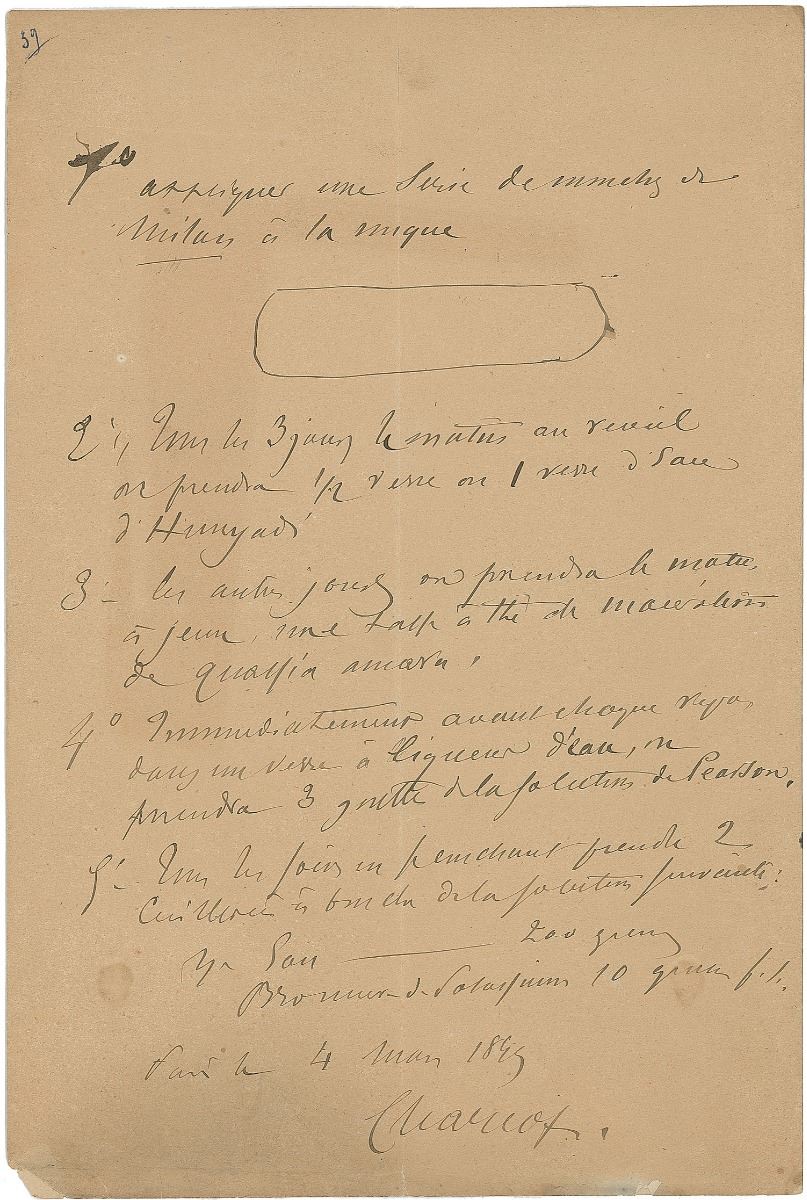 39
1°
appliquer une Série de mouches de
Milan à la nuque
2°, Tous les 3 jours le matin au reveil
on prendra 1/2 verre ou 1 verre d'Eau
d'Hunyadi
3°- les autres jours on prendra le matin
à jeun, une tasse à thé de macération
de quassia amara.
4° Immédiatement avant chaque repas,
dans un verre à liqueur d'eau, on
prendra 3 gouttes de la solution de Pearson.
5°- Tous les soirs en se couchant prendre 2
Cuillerées à bouche de la solution suivante:
Eau — 200 grammes
Bromure de Potassium 10 grammes f.s.
Paris le 4 Mars
Charcot.